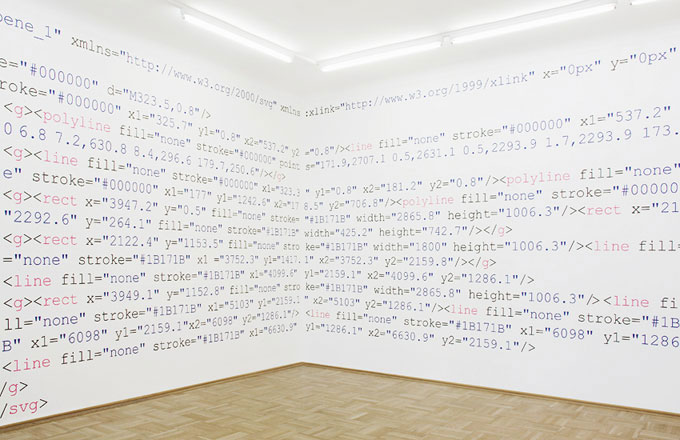 ene_1" xmlns="http://www.w3.org/2000/svg" xmlns:xlink="http://www.w3.org/1999/xlink" x="0px" y="0px"
stroke="#000000" d="M323.5,0.8"/>
stroke="#000000" x1="325.7" y1="0.8" x2="537.2" y2="0.8"/><line fill="none" stroke="#000000" x1="537.2"
<g><polyline fill="none" stroke="#000000" points="171.9,2707.1 0.5,2631.1 0.5,2293.9 1.7,2293.9 173.
0 6.8 7.2,630.8 8.4,296.6 179.7,250.6"/></g>
<g><line fill="none" stroke="#000000" x1="323.3" y1="0.8" x2="181.2" y2="0.8"/><polyline fill="none"
e" stroke="#000000" x1="177" y1="1242.6" x2="178.5" y2="706.8"/><polyline fill="none" stroke="#00000
<g><rect x="3947.2" y="0.5" fill="none" stroke="#1B171B" width="2865.8" height="1006.3"/><rect x="21
"2292.6" y="264.1" fill="none" stroke="#1B171B" width="425.2" height="742.7"/></g>
<g><rect x="2122.4" y="1153.5" fill="none" stroke="#1B171B" width="1800" height="1006.3"/><line fill
="none" stroke="#1B171B" x1="3752.3" y1="1417.1" x2="3752.3" y2="2159.8"/></g>
<line fill="none" stroke="#1B171B" x1="4099.6" y1="2159.1" x2="4099.6" y2="1286.1"/>
<g><rect x="3949.1" y="1152.8" fill="none" stroke="#1B171B" width="2865.8" height="1006.3"/><line fi
ll="none" stroke="#1B171B" x1="5103" y1="2159.1" x2="5103" y2="1286.1"/><line fill="none" stroke="#1B
B" x1="6098" y1="2159.1"x2="6098" y2="1286.1"/><line fill="none" stroke="#1B171B" x1="6098" y1="1286
<line fill="none" stroke="#1B171B" x1="6630.9" y1="1286.1" x2="6630.9" y2="2159.1"/>
/g>
/svg>